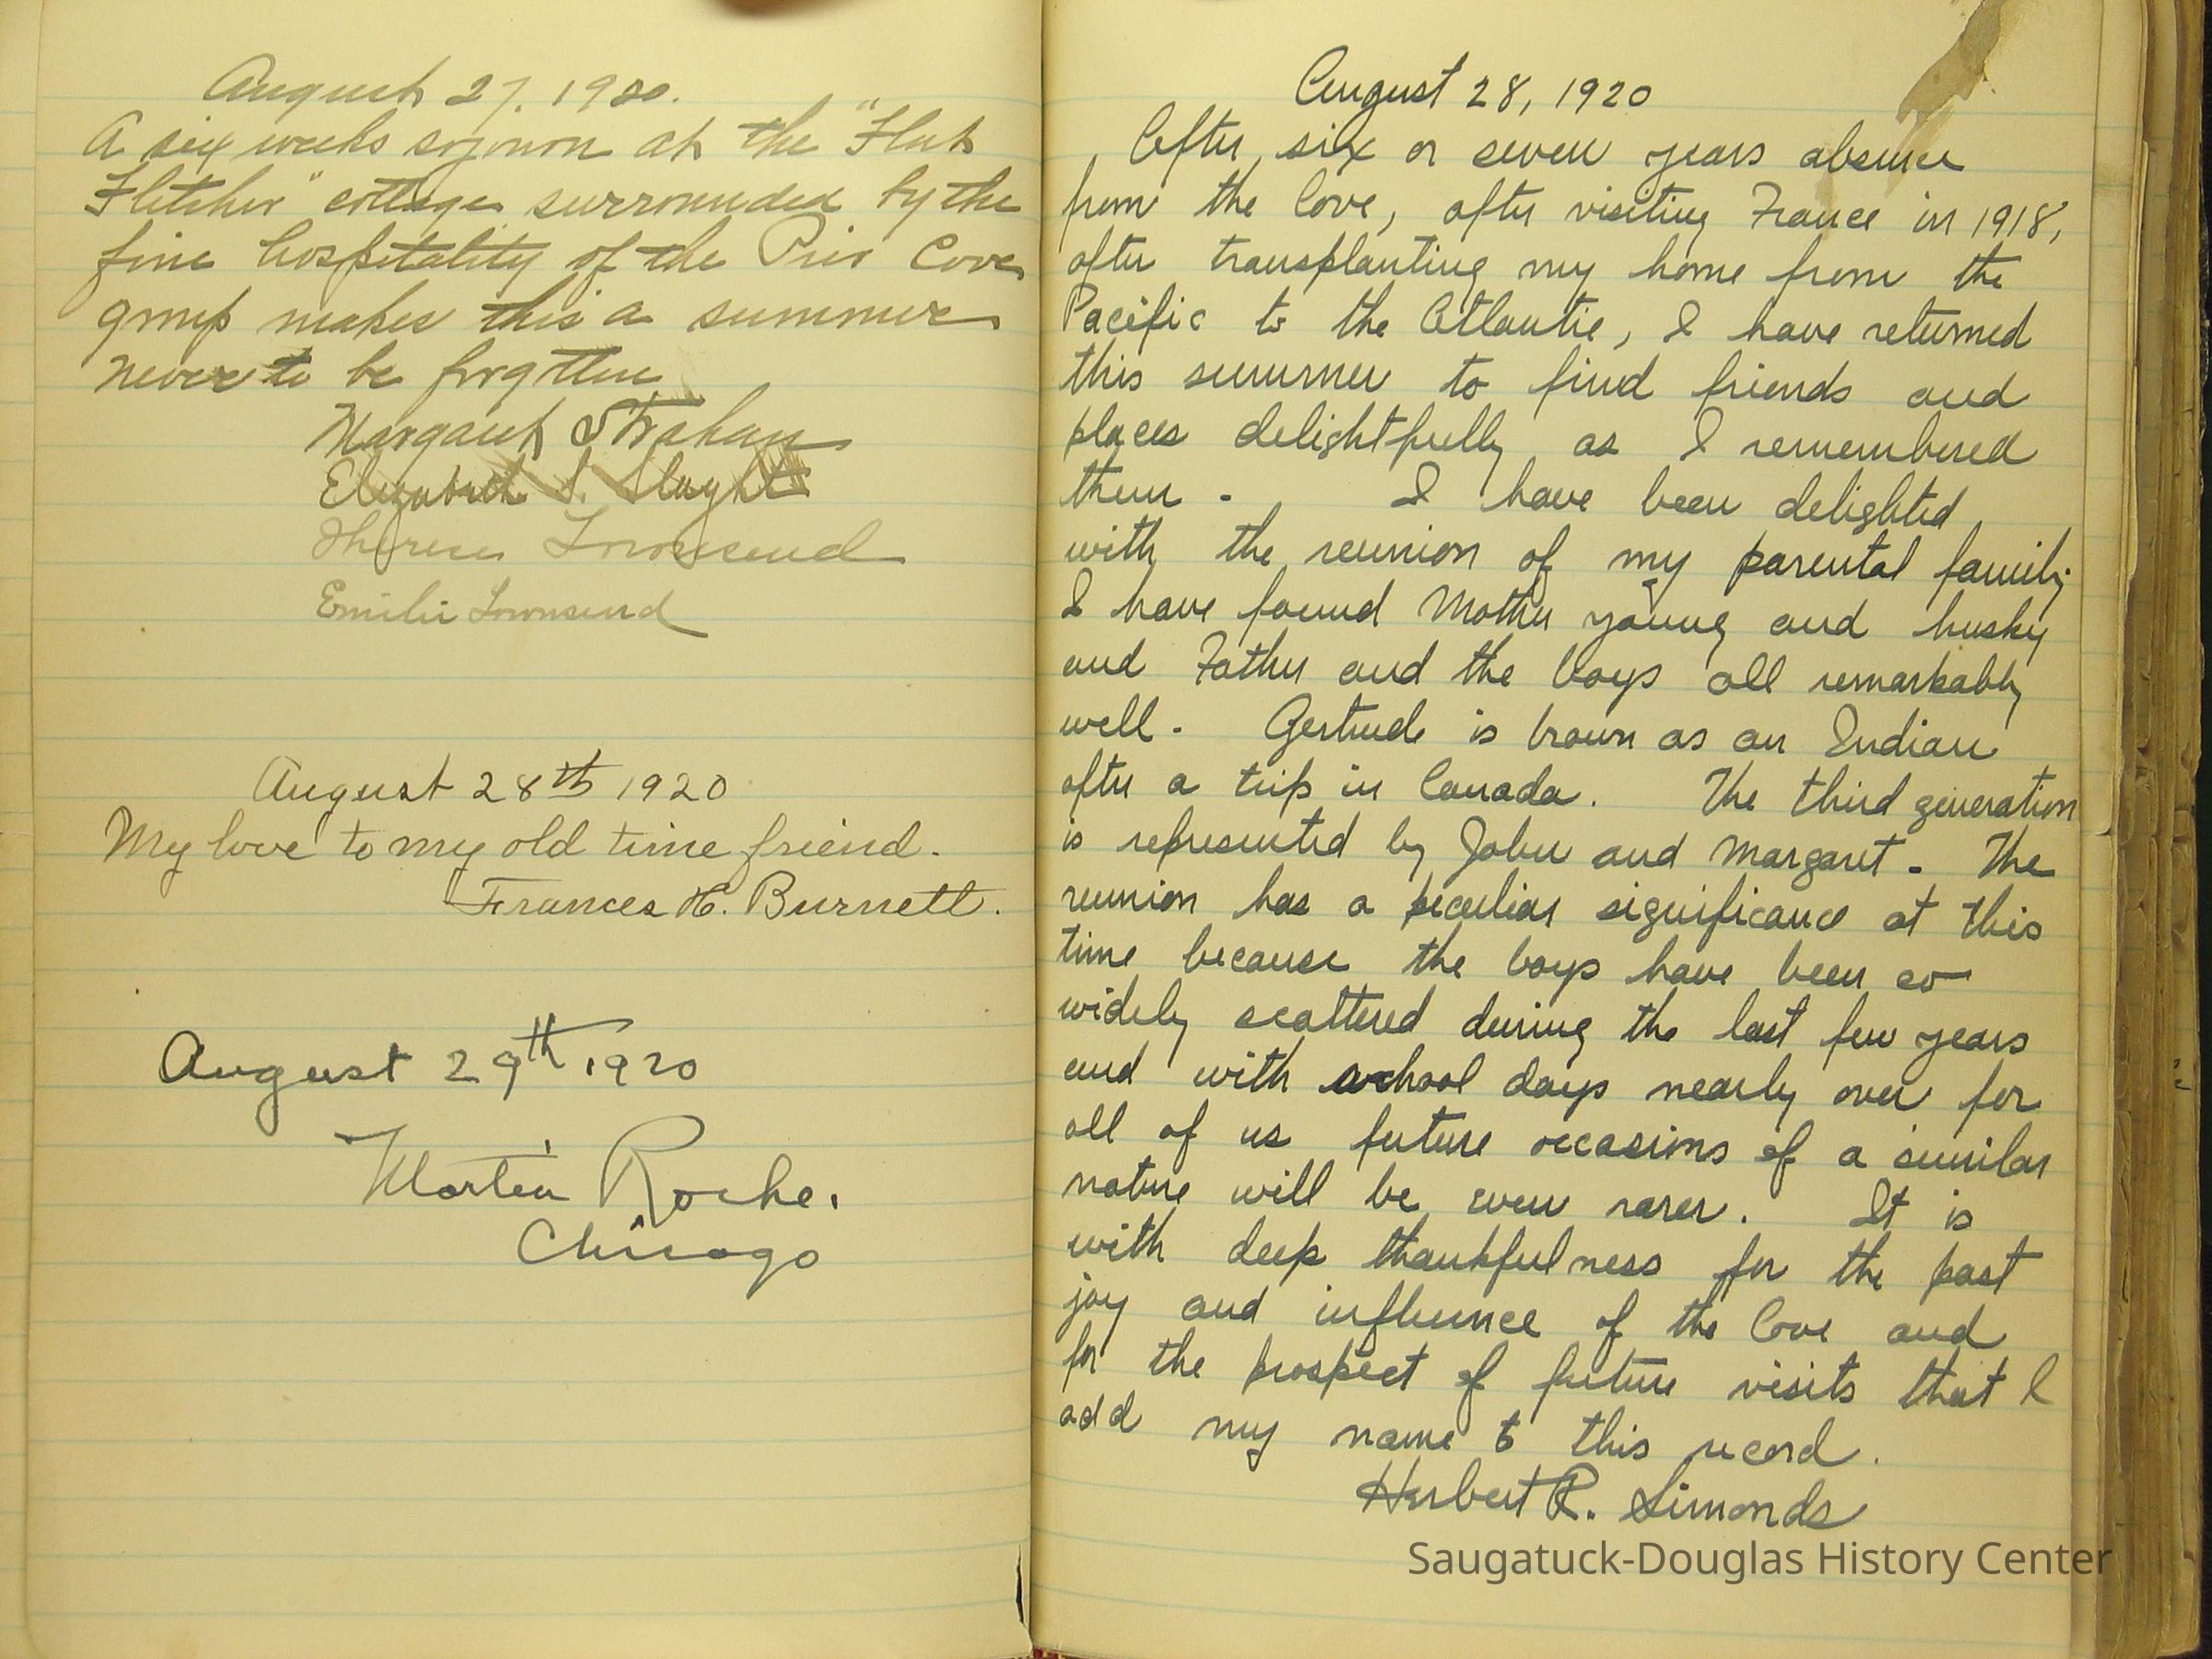 August 27, 1920.
A six weeks sojourn at the "Flat
Fletcher" cottage surrounded by the
fine hospitality of the Pier Cove
group makes this a summer
never to be forgotten
Margaret Strahan
Elizabeth S. Slaght
Therese Townsend
Emilie Townsend
August 28th 1920
My love to my old time friend.
Frances H. Burnett.
August 29th 1920
Martin Roche.
Chicago
August 28, 1920
After six or seven years absence
from the Cove, after visiting France in 1918,
after transplanting my home from the
Pacific to the Atlantic, I have returned
this summer to find friends and
places delightfully as I remembered
them - I have been delighted
with the reunion of my parental family
I have found Mother young and husky
and Father and the boys all remarkably
well - Gertrude is brown as an Indian
after a trip in Canada. The third generation
is represented by John and Margaret - The
reunion has a peculiar significance at this
time because the boys have been so
widely scattered during the last few years
and with school days nearly over for
all of us future occasions of a similar
nature will be even rarer. It is
with deep thankfulness for the past
joy and influence of the Cove and
for the prospect of future visits that I
add my name to this record.
Herbert R. Simonds
Saugatuck-Douglas History Center